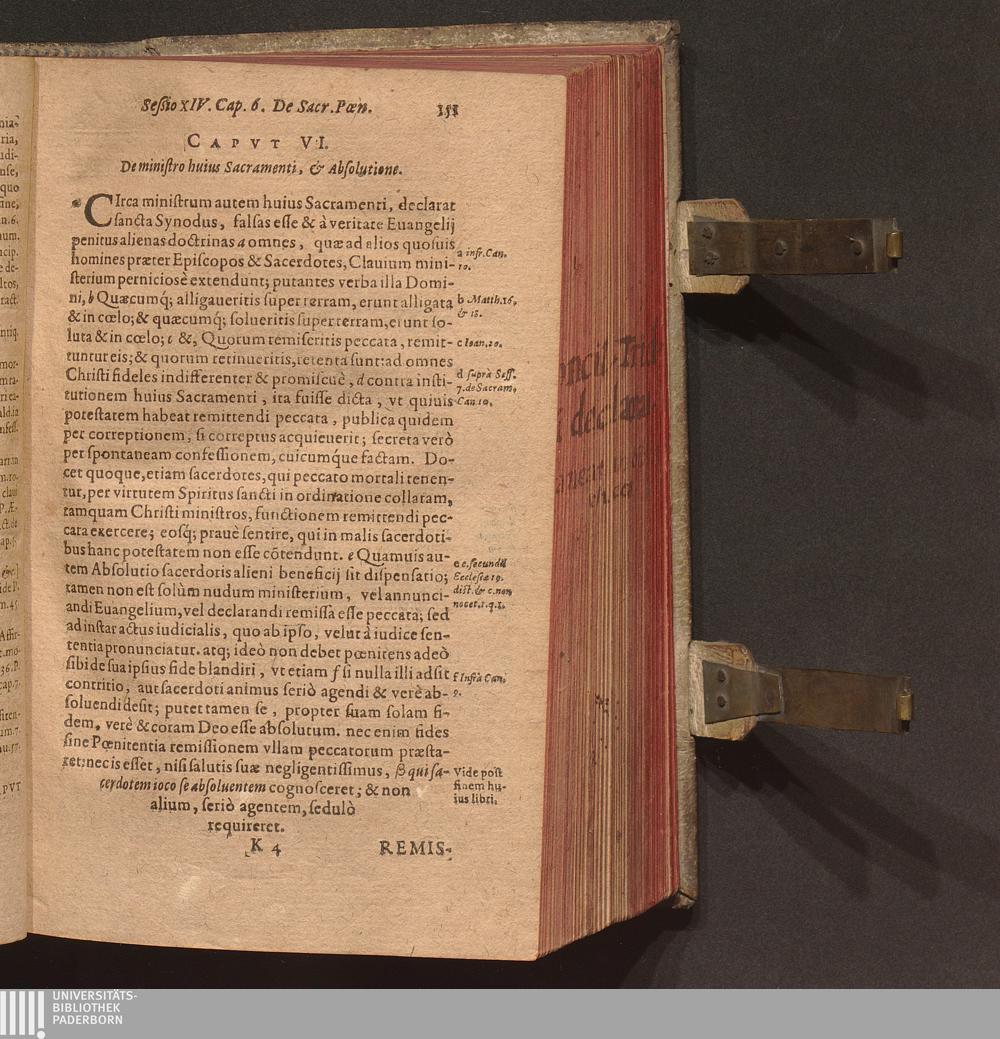 Sessio XIV. Cap. 6. De Sacr. Pœn. 151
CAPVT VI.
De ministro huius Sacramenti, & Absolutione.
* CIrca ministrum autem huius Sacramenti, declarat
sancta Synodus, falsas esse & à veritate Euangelij
penitus alienas doctrinas a omnes, quæ ad alios quosuis
homines præter Episcopos & Sacerdotes, Clauium mini-
sterium perniciosè extendunt; putantes verba illa Domi-
ni, b Quæcumq; alligaueritis super terram, erunt alligata
& in cœlo; & quæcumq; solueritis super terram, erunt so-
luta & in cœlo; c &, Quorum remiseritis peccata, remit-
tuntur eis; & quorum retinueritis, retenta sunt: ad omnes
Christi fideles indifferenter & promiscuè, d contra insti-
tutionem huius Sacramenti, ita fuisse dicta, vt quiuis
potestatem habeat remittendi peccata, publica quidem
per correptionem, si correptus acquieuerit; secreta verò
per spontaneam confessionem, cuicumque factam. Do-
cet quoque, etiam sacerdotes, qui peccato mortali tenen-
tur, per virtutem Spiritus sancti in ordinatione collatam,
tamquam Christi ministros, functionem remittendi pec-
cata exercere; eosq; prauè sentire, qui in malis sacerdoti-
bus hanc potestatem non esse cõtendunt. e Quamuis au-
tem Absolutio sacerdotis alieni beneficij sit dispensatio;
tamen non est solùm nudum ministerium, vel annunci-
andi Euangelium, vel declarandi remissa esse peccata; sed
ad instar actus iudicialis, quo ab ipso, velut à iudice sen-
tentia pronunciatur. atq; ideò non debet pœnitens adeò
sibi de sua ipsius fide blandiri, vt etiam f si nulla illi adsit
contritio, aut sacerdoti animus seriò agendi & verè ab-
soluendi desit; putet tamen se, propter suam solam fi-
dem, verè & coram Deo esse absolutum. nec enim fides
sine Pœnitentia remissionem vllam peccatorum præsta-
ret: nec is esset, nisi salutis suæ negligentissimus, β qui sa-
cerdotem ioco se absoluentem cognosceret; & non
alium, seriò agentem, sedulò
requireret.
K 4 REMIS-
a infr. Can.
10.
b Matth. 16,
& 18.
c Ioan. 20.
d suprà Sess.
7. de Sacram,
Can 10.
e c. secundũ
Ecclesiæ 19.
dist. & c. non
nocet. 1. q. 1.
f Infrà Can.
9.
Vide post
finem hu-
ius libri.
PVT
UNIVERSITÄTS-
BIBLIOTHEK
PADERBORN